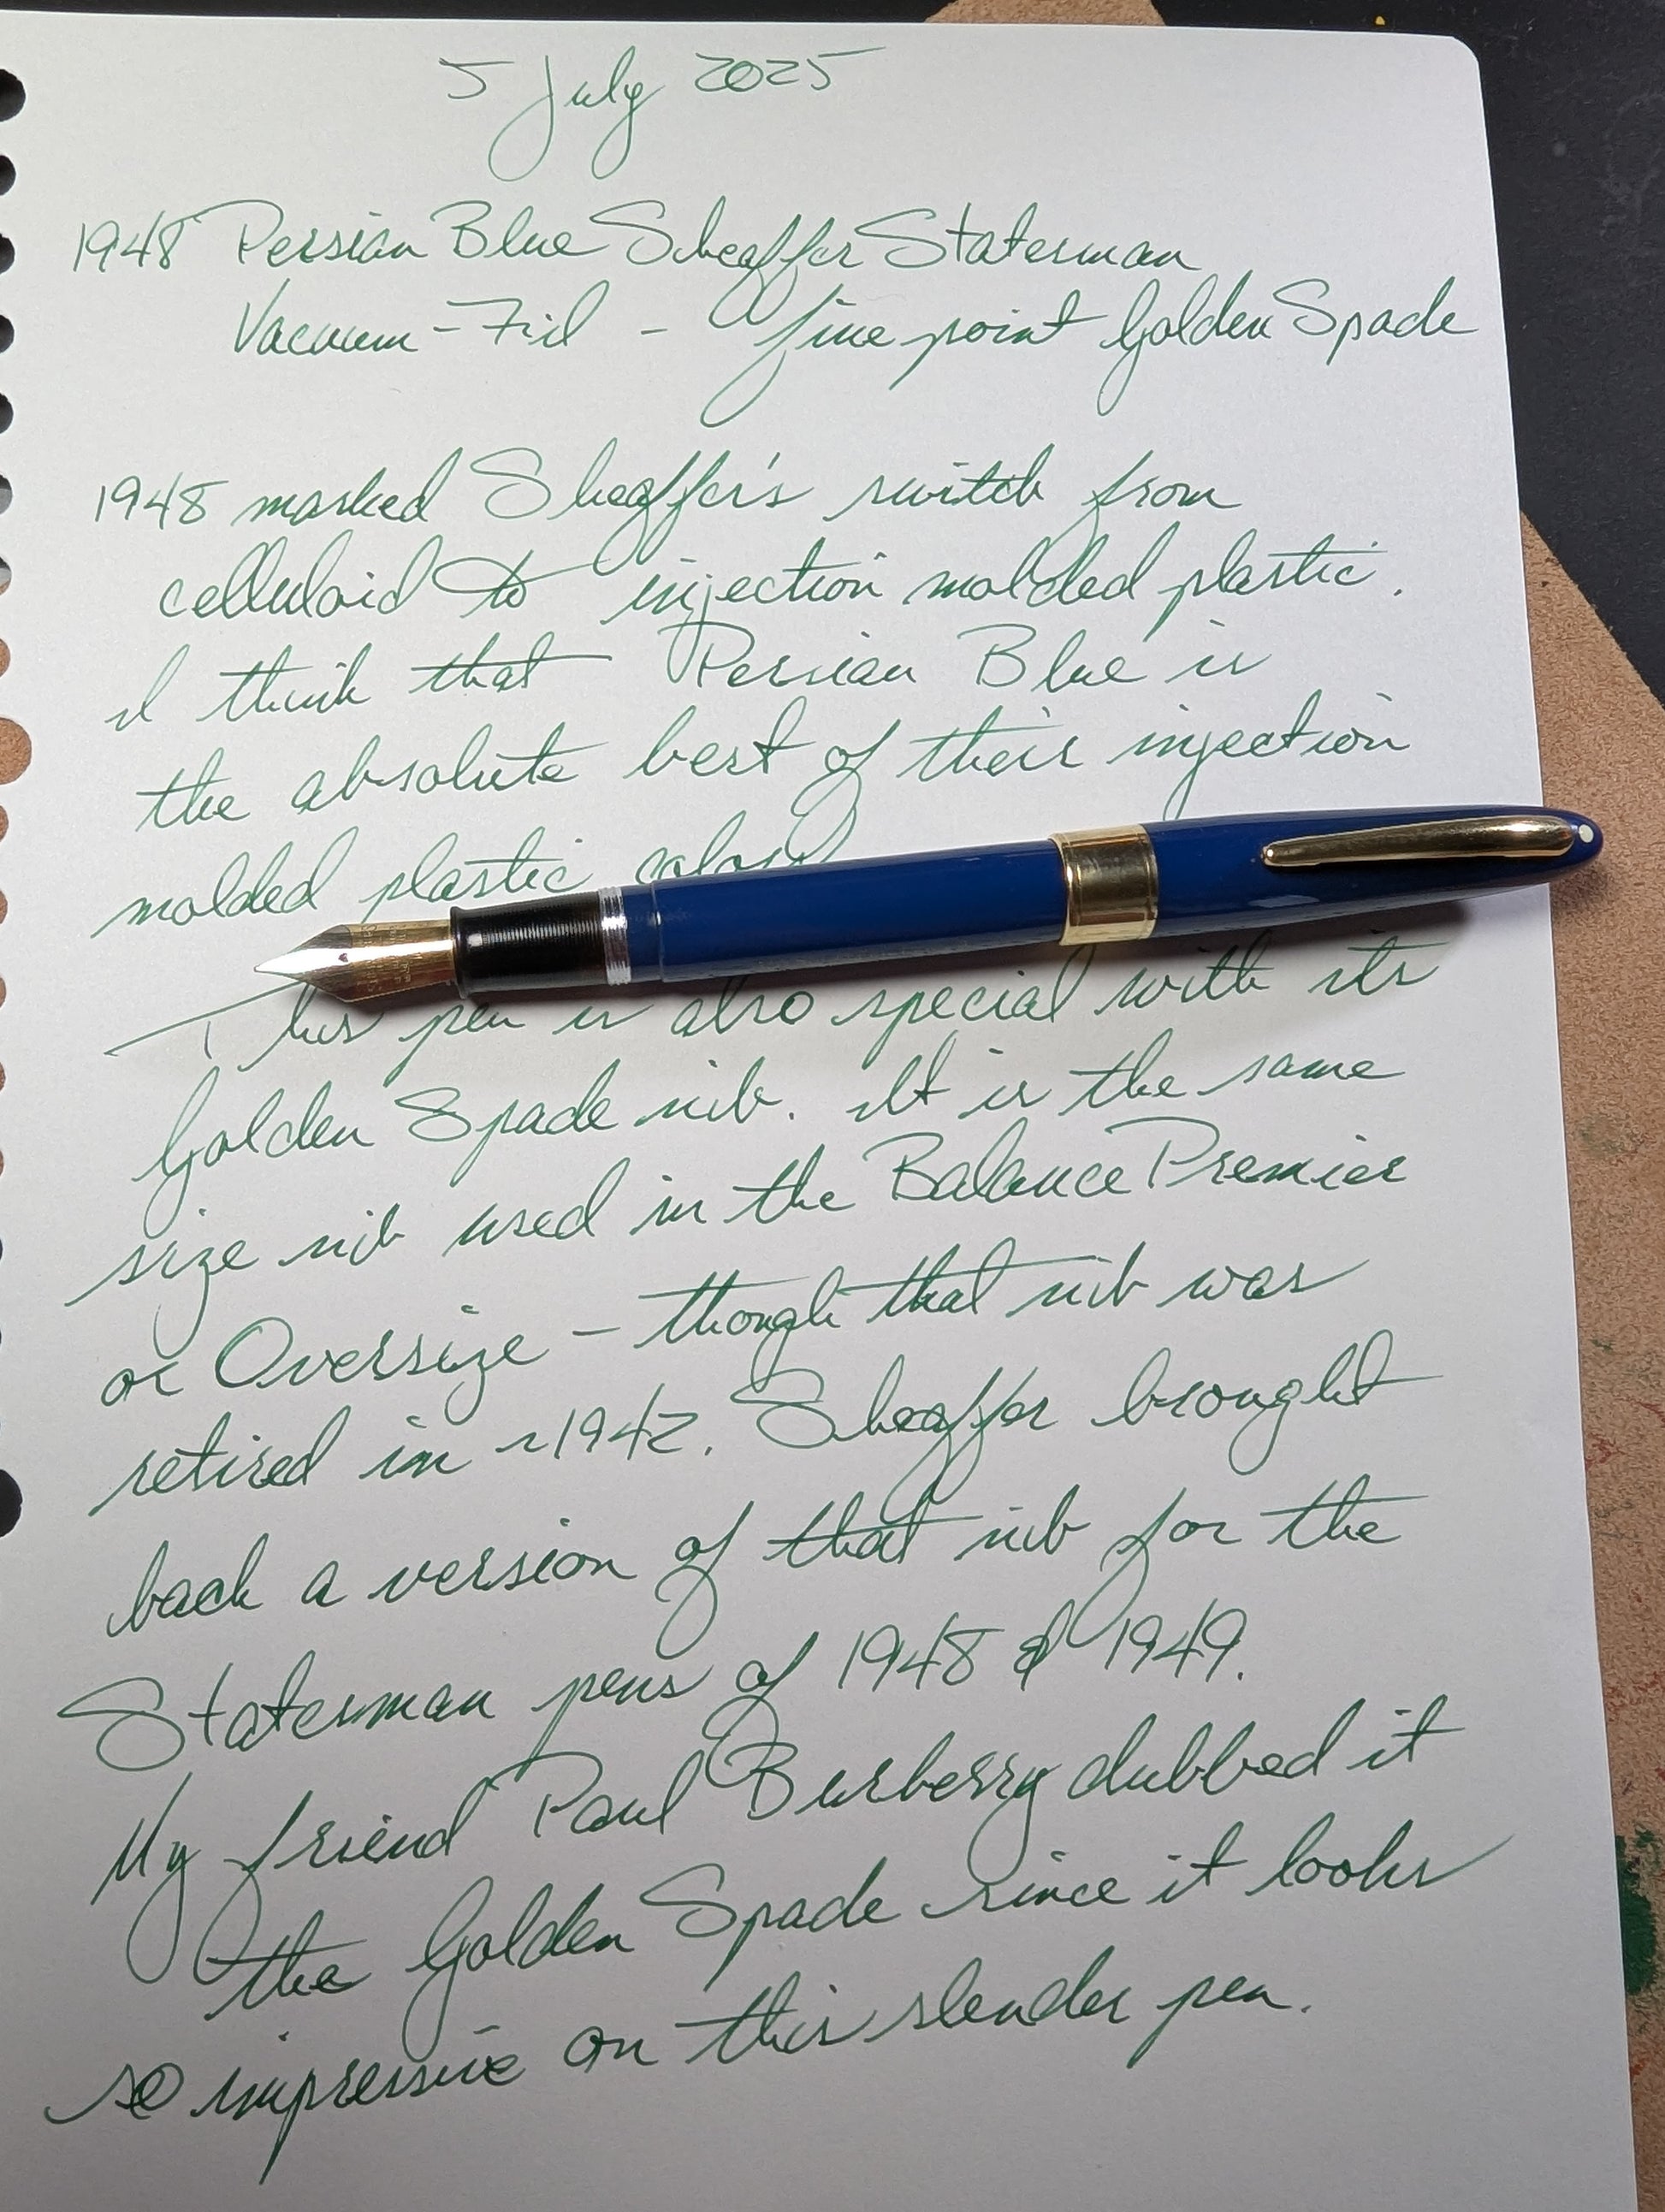 5 July 2025
1948 Persian Blue Sheaffer Statesman
Vacuum-Fil - fine point Golden Spade
1948 marked Sheaffer's switch from
celluloid to injection molded plastic.
I think that Persian Blue is
the absolute best of their injection
molded plastic colors
This pen is also special with its
Golden Spade nib. It is the same
size nib used in the Balance Premier
or Oversize - though that nib was
retired in ~1942. Sheaffer brought
back a version of that nib for the
Statesman pens of 1948 & 1949.
My friend Paul Burberry dubbed it
the Golden Spade since it looks
so impressive on this slender pen.